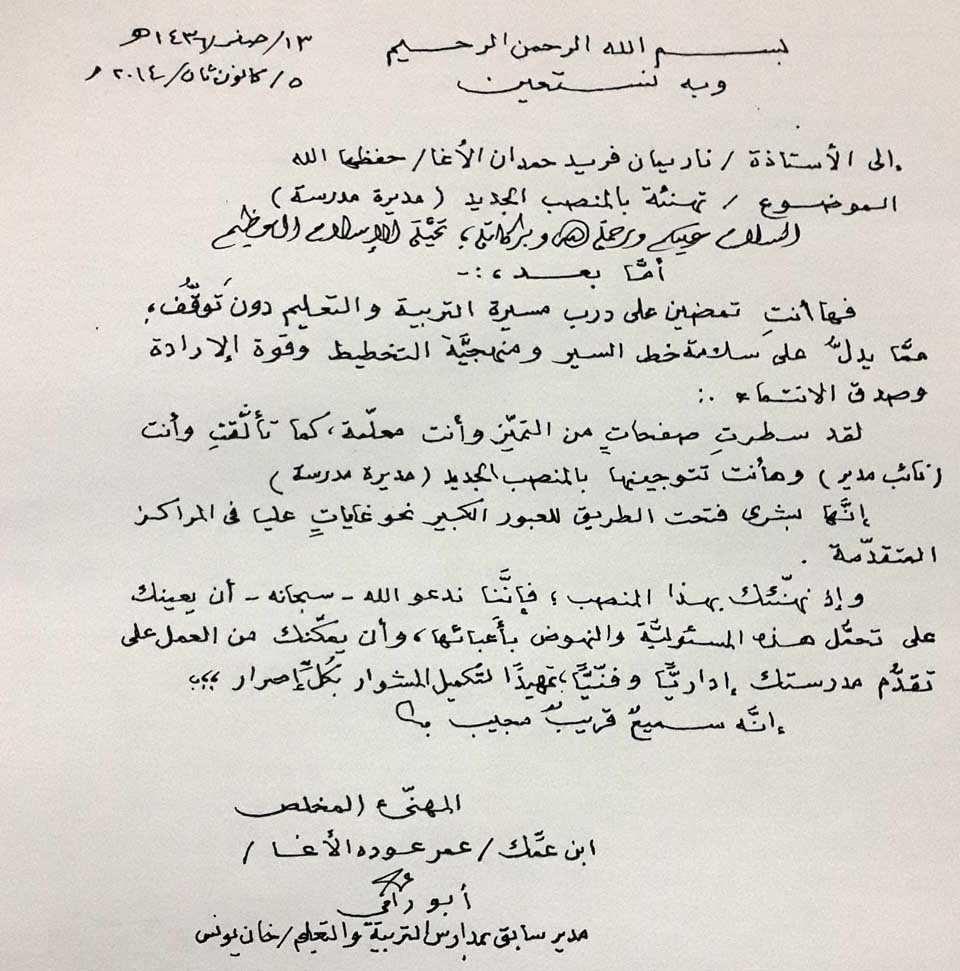 بسم الله الرحمن الرحيم
وبه نستعين
١٣/ صفر/ ١٤٣٦هـ
٥/ كانون ثان/ ٢٠١٤ م
إلى الأستاذة / ناريمان فريد حمدان الأغا / حفظها الله
الموضوع / تهنئة بالمنصب الجديد (مديرة مدرسة)
السلام عليكم ورحمة الله وبركاته، تحيّة الإسلام العظيم
أمَّا بعد ،:-
فها أنتِ تمضين على درب مسيرة التربية والتعليم دونَ توقُّف،
ممَّا يدلُّ على سلامة خط السير ومنهجيَّة التخطيط وقوة الإرادة
وصدق الانتماء .:
لقد سطرتِ صفحاتٍ من التميّز وأنت معلّمة، كما تألَّقتِ وأنت
(نائب مدير) وهأنت تتوجينها بالمنصب الجديد (مديرة مدرسة)
إنَّها بشرى فتحت الطريق للعبور الكبير نحو غاياتٍ عليا في المراكز
المتقدّمة .
وإذ نهنّئك بهذا المنصب ؛ فإنَّنا ندعو الله - سبحانه - أن يعينك
على تحمّل هذه المسئوليَّة والنهوض بأعبائها، وأن يمكّنك من العمل على
تقدُّم مدرستك إداريًّا وفنّيًّا ؛ تمهيدًا لتكميل المشوار بكُلِّ إصرار ،،،
إنَّه سميعٌ قريبٌ مجيب
المهنّىء المخلص
ابن عمَّك / عمر عوده الأغا /
أبو رامي
مدير سابق بمدارس التربية والتعليم / خان يونس